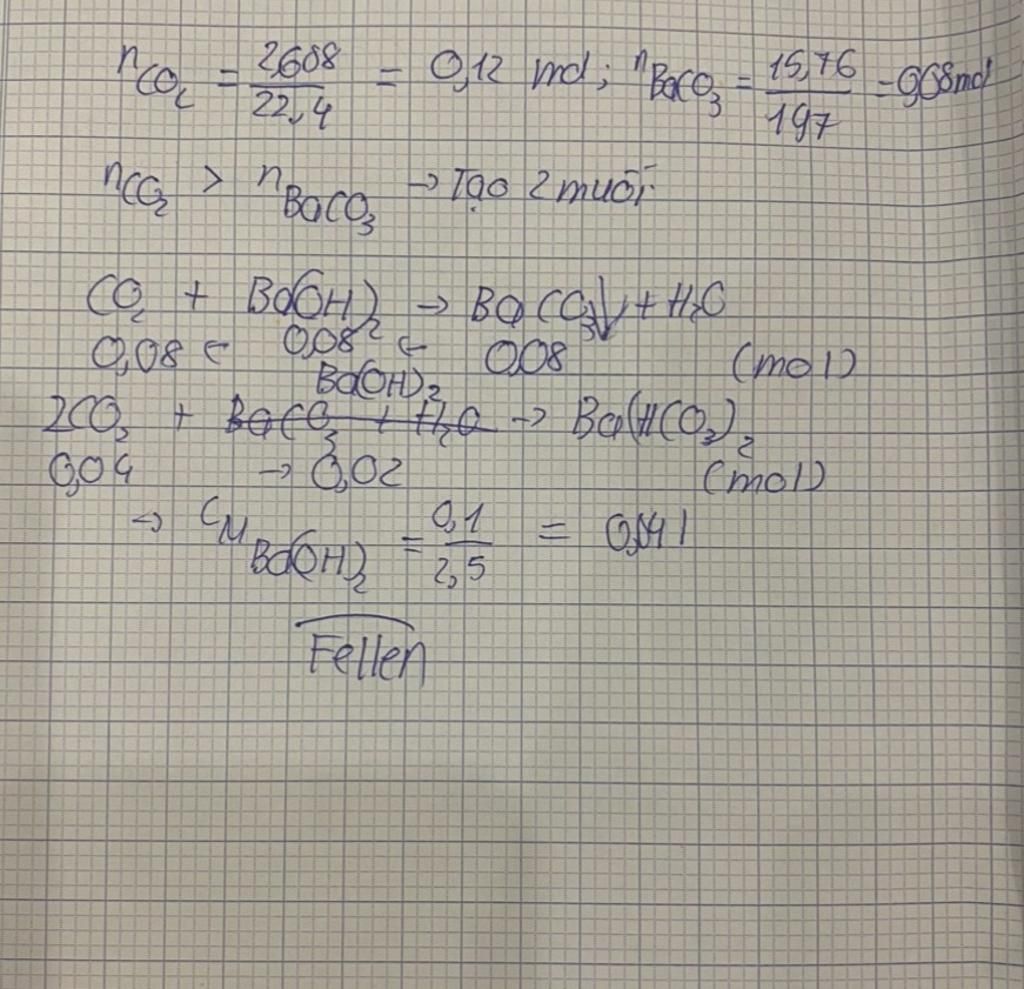 nCO₂ = 2,688/22,4 = 0,12 mol; nBaCO₃ = 15,76/197 = 0,08mol
nCO₂ > nBaCO₃ → Tạo 2 muối
CO₂ + Ba(OH)₂ → BaCO₃↓ + H₂O
0,08 ← 0,08 ← 0,08 (mol)
Ba(OH)₂
2CO₂ + BaCO₃ + H₂O → Ba(HCO₃)₂
0,04 → 0,02 (mol)
→ CM Ba(OH)₂ = 0,1/2,5 = 0,04
Fellen